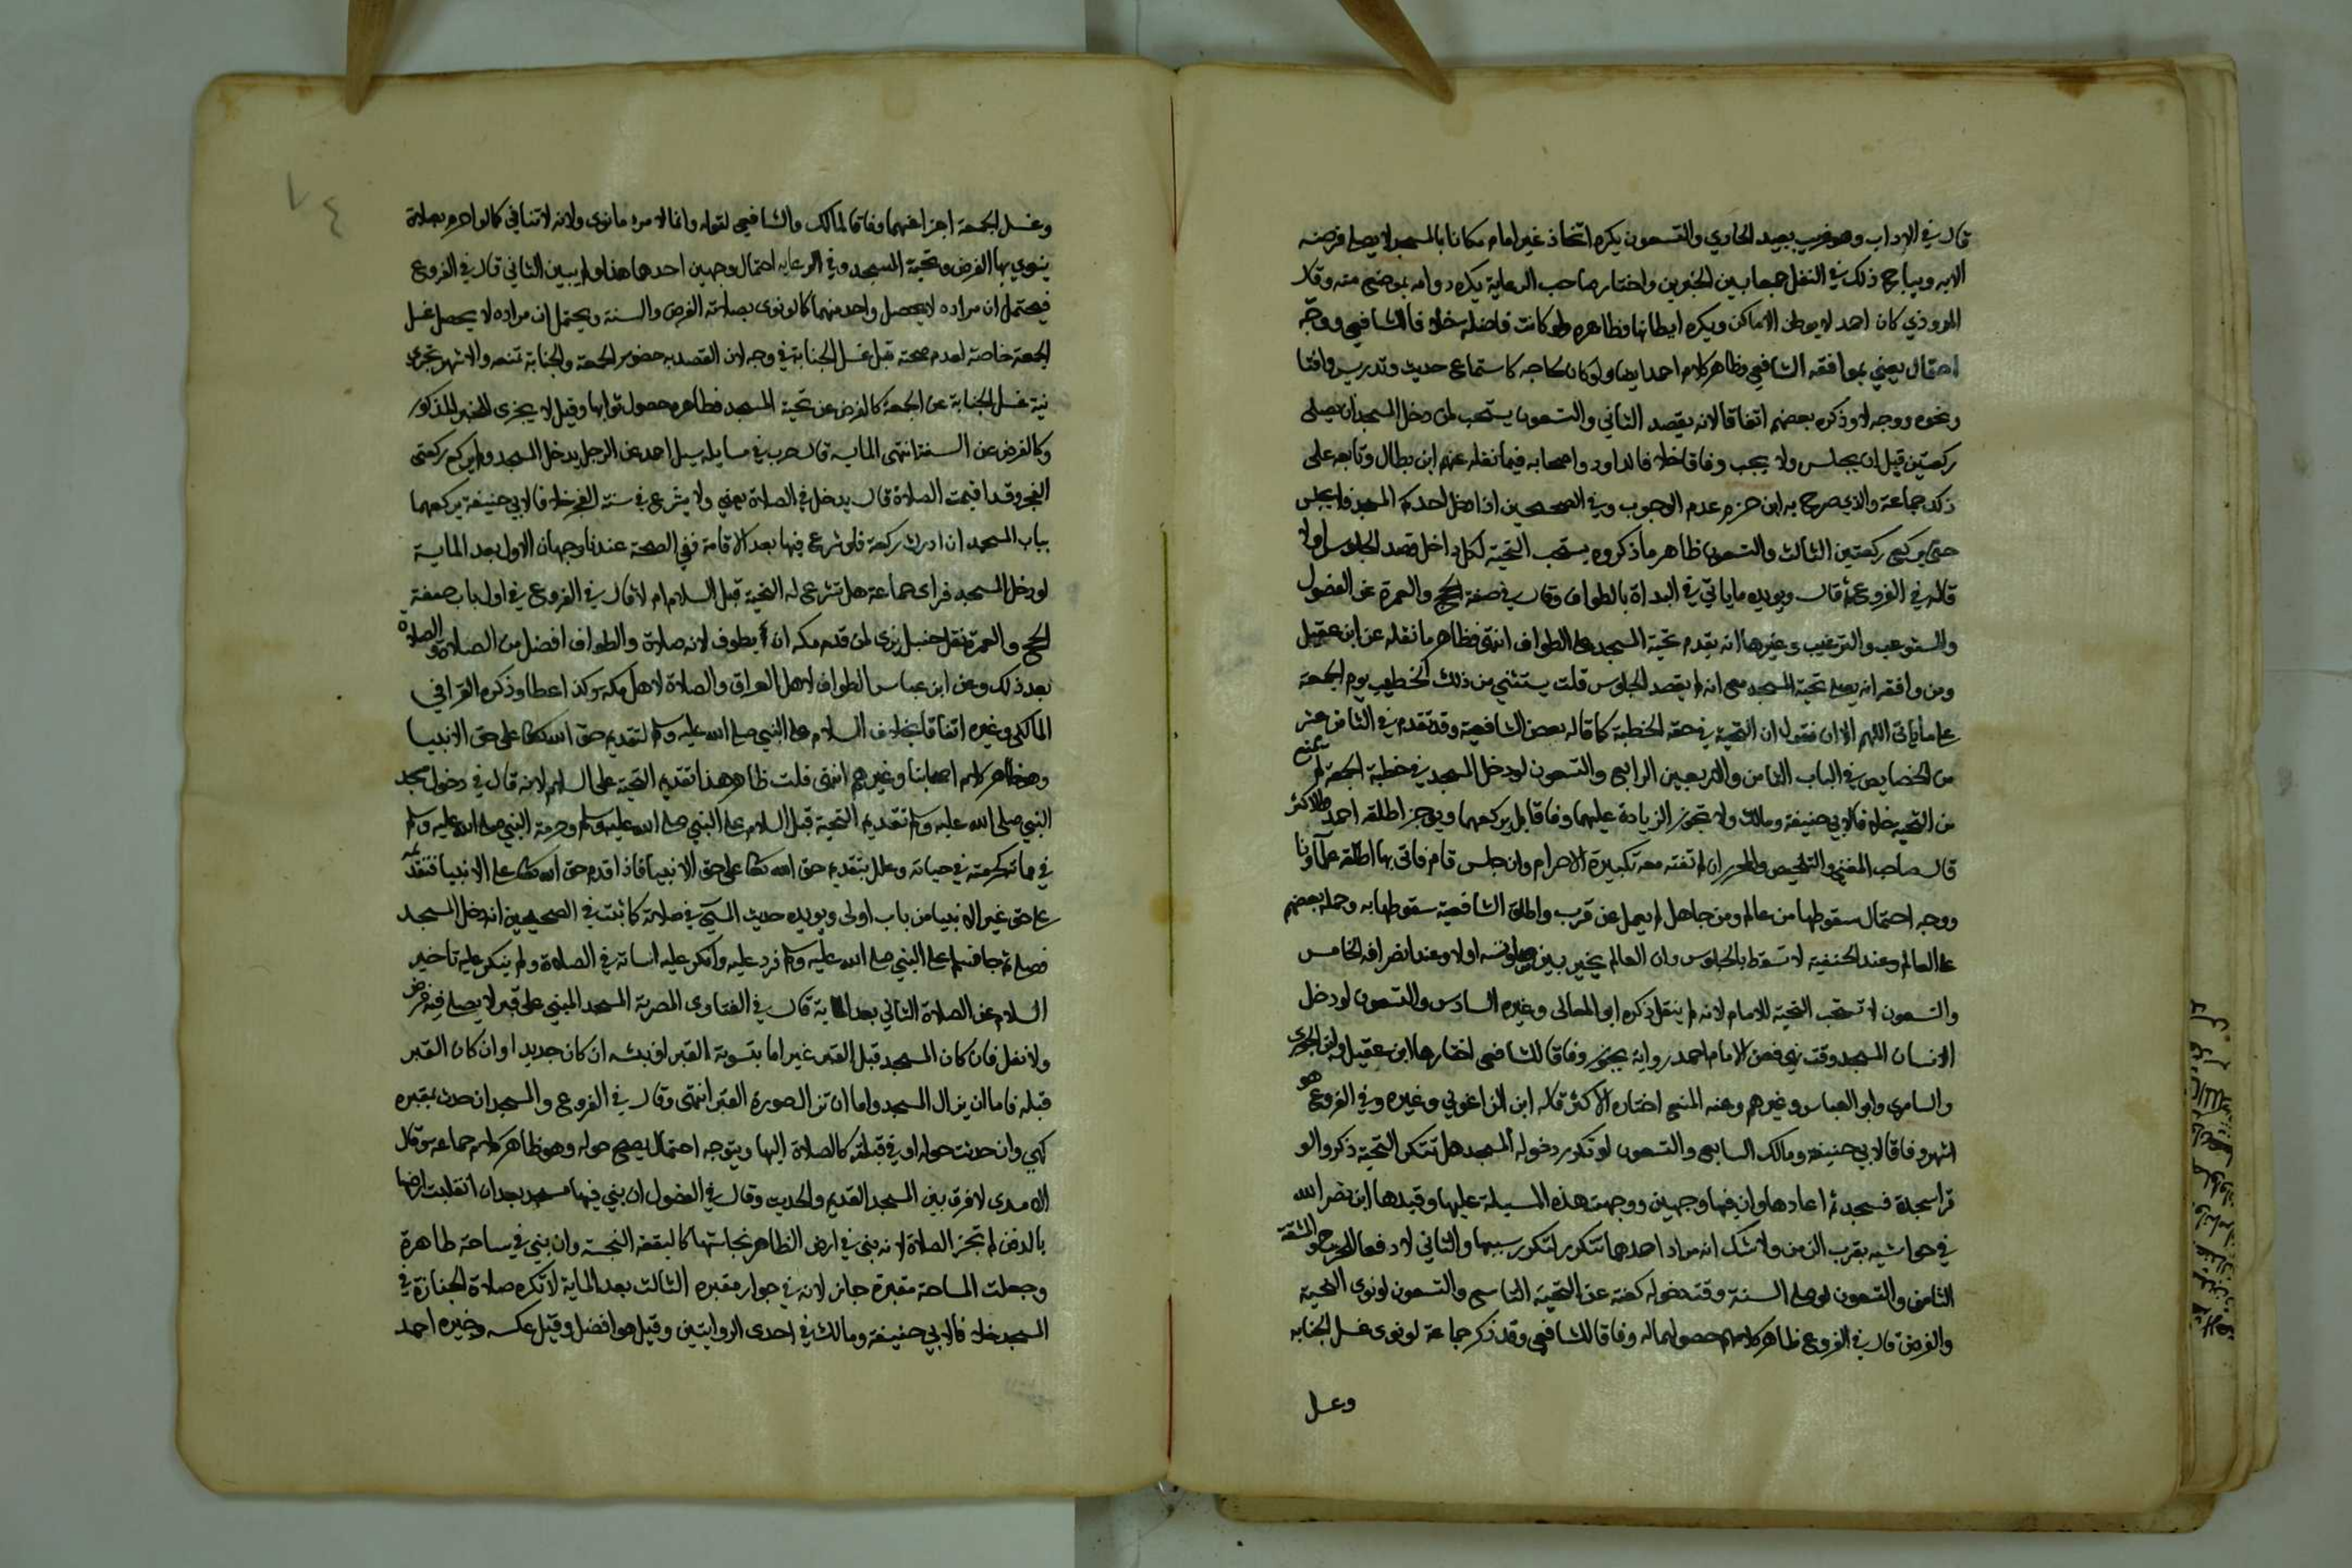 قال في الاداب وهو غريب بعيد الحاوي والتسعون يكره اتخاذ غير امام مكانا بالمسجد لا يصلي فرضه
الا به ويباح ذلك في النفل جمعا بين الخبرين واختار صاحب الرعاية يكره دوامه بموضع منه وقال
المروذي كان احمد لا يوطن الاماكن ويكره ايطانها فظاهره ولو كانت فاضلة خلافا للشافعي ووجه
احتمال يعني بموافقة الشافعي وظاهر كلام احمد ايضا ولو كان لحاجه كاستماع حديث وتدريس وافتا
ونحوه ووجه لا وذكره بعضهم اتفاقا لانه يقصد الثاني والتسعون يستحب لمن دخل المسجد ان يصلي
ركعتين قبل ان يجلس ولا يجب وفاقا خلافا لداود واصحابه فيما نقله عنهم ابن بطال وتابعه على
ذلك جماعة والذي صرح به ابن حزم عدم الوجوب وفي الصحيحين اذا دخل احدكم المسجد فلا يجلس
حتى يركع ركعتين الثالث والتسعون ظاهر ما ذكروه يستحب التحية لكل داخل قصد الجلوس اولا
قاله في الفروع ثم قال ويويده ما ياتي في البداة بالطواف وقال في صفة الحج والعمرة عن الفصول
والمستوعب والترغيب وغيرها انه يقدم تحية المسجد على الطواف انتهى فظاهر ما نقله عن ابن عقيل
ومن وافقه انه يصلي تحية المسجد مع انه لم يقصد الجلوس قلت يستثني من ذلك الخطيب يوم الجمعة
على ما ياتي اللهم الا ان نقول ان التحية في حقه الخطبة كما قاله بعض الشافعية وقد تقدم في الثامن عشر
من الخصايص في الباب الثامن والاربعين الرابع والتسعون لو دخل المسجد في خطبة الجمعة لم يمنع
من التحية خلافا لابي حنيفة ومالك ولا تجوز الزيادة عليهما وفاقا بل يركعهما ويوجز اطلقه احمد والاكثر
قال صاحب المغني والتلخيص والمحرر ان لم تفته معه تكبيرة الاحرام وان جلس قام فاتى بها اطلقه علماونا
ووجه احتمال سقوطها من عالم ومن جاهل لم يعمل عن قرب واطلق الشافعية سقوطها به وحمله بعضهم
على العالم وعند الحنفية لا تسقط بالجلوس وان العالم يخير بين صلوته اولا وعند انصرافه الخامس
والتسعون لا تستحب التحية للامام لانه لم ينقل ذكره ابو المعالي وغيره السادس والتسعون لو دخل
الانسان المسجد وقت نهي فعن الامام احمد رواية يجوز وفاقا للشافعي اختارها ابن عقيل وابن الجوزي
والسامري وابو العباس وغيرهم وعنه المنع اختاره الاكثر قاله ابن الزاغوني وغيره وفي الفروع هو
اشهر وفاقا لابي حنيفة ومالك السابع والتسعون لو تكرر دخوله المسجد هل تتكرر التحية ذكروا لو
قرا سجدة فسجد ثم اعادها وان فيها وجهين ووجهت هذه المسيلة عليها وقيدها ابن نصر الله
في حواشيه بقرب الزمن ولا شك انه مراد احدهما تتكرر لتكرر سببها والثاني لا دفعا للحرج والمشقة
الثامن والتسعون لو صلى السنة وقت دخوله كفته عن التحية التاسع والتسعون لو نوى التحية
والفرض قال في الفروع ظاهر كلامهم حصولهما له وفاقا للشافعي وقد ذكر جماعة لو نوى غسل الجنابه
وغسل
٧٤
وغسل الجمعة اجزا عنهما وفاقا لمالك والشافعي لقوله وانما لامرء ما نوى ولانه لا تنافي كما لو احرم بصلاة
ينوي بها الفرض وتحية المسجد وفي الرعايه احتمال وجهين احدهما هذا ولم يبين الثاني قال في الفروع
فيحتمل ان مراده لا يحصل واحد منهما كما لو نوى بصلاته الفرض والسنة ويحتمل ان مراده لا يحصل غسل
الجمعة خاصة لعدم صحته قبل غسل الجنابة في وجه لان القصد به حضور الجمعة والجنابة تمنعه والاشهر تجزى
نية غسل الجنابة عن الجمعة كالفرض عن تحية المسجد فظاهره حصول ثوابها وقيل لا يجزى للخبر المذكور
وكالفرض عن السنة انتهى المايه قال حرب في مسايله سيل احمد عن الرجل يدخل المسجد ولم يركع ركعتي
الفجر وقد اقيمت الصلاة قال يدخل في الصلاة يعني ولا يشرع في سنة الفجر خلافا لابي حنيفة يركعهما
بباب المسجد ان ادرك ركعة فلو شرع فيها بعد الاقامة ففي الصحة عندنا وجهان الاول بعد الماية
لو دخل المسجد فراى جماعة هل تشرع له التحية قبل السلام ام لا قال في الفروع في اول باب صفة
الحج والعمرة نقل حنبل نرى لمن قدم مكه ان يطوف لانه صلاة والطواف افضل من الصلاة والصلاة
بعد ذلك وعن ابن عباس الطواف لاهل العراق والصلاة لاهل مكه وكذا عطا وذكره القرافي
المالكي وغيره اتفاقا بخلاف السلام على النبي صلى الله عليه وسلم لتقديم حق الله تعالى على حق الانبيا
وهو ظاهر كلام اصحابنا وغيرهم انتهى قلت ظاهر هذا تقديم التحية على السلام لانه قال في دخول مسجد
النبي صلى الله عليه وسلم تقديم التحية قبل السلام على النبي صلى الله عليه وسلم وحرمة النبي صلى الله عليه وسلم
في مماته كحرمته في حياته وعلل بتقديم حق الله تعالى على حق الانبيا فاذا قدم حق الله تعالى على الانبيا فتقدمه
على حق غير الانبيا من باب اولى ويويده حديث المسي في صلاته كما ثبت في الصحيحين انه دخل المسجد
فصلى ثم جا فسلم على النبي صلى الله عليه وسلم فرد عليه وانكر عليه اساته في الصلاة ولم ينكر عليه تاخير
السلام عن الصلاة الثاني بعد الماية قال في الفتاوى المصرية المسجد المبني على قبر لا يصلى فيه فرض
ولا نفل فان كان المسجد قبل القبر غير اما بتسوية القبر او نبشه ان كان جديدا وان كان القبر
قبله فاما ان يزال المسجد واما ان تزال صورة القبر انتهى وقال في الفروع والمسجد ان حدث بمقبره
كهي وان حدثت حوله او في قبلته كالصلاة اليها ويتوجه احتمال يصح حوله وهو ظاهر كلام جماعة وقال
الامدى لا فرق بين المسجد القديم والحديث وقال في الفصول ان بني فيها مسجد بعد ان انقلبت ارضها
بالدفن لم تجز الصلاة لانه بني في ارض الظاهر نجاستها كالبقعة النجسة وان بني في ساحة طاهرة
وجعلت الساحة مقبرة جاز لانه في جوار مقبره الثالث بعد الماية لا تكره صلاة الجنازة في
المسجد خلافا لابي حنيفة ومالك في احدى الروايتين وقيل هو افضل وقيل عكسه وخيره احمد